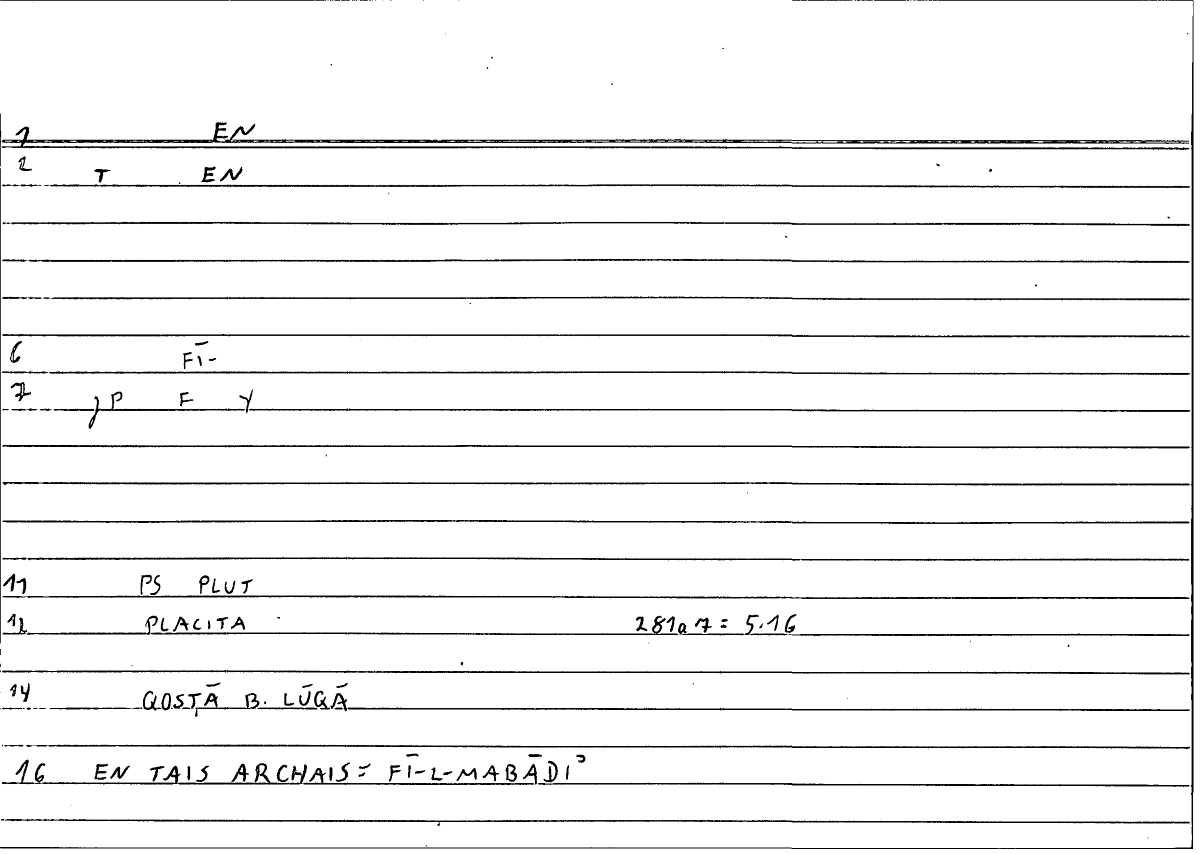 1 EN
2 T EN
6 FĪ-
7 JP F Y
11 PS PLUT
12 PLACITA 281a7 = 5.16
14 QOSṬĀ B. LŪQĀ
16 EN TAIS ARCHAIS = FĪ-L-MABĀDIʾ